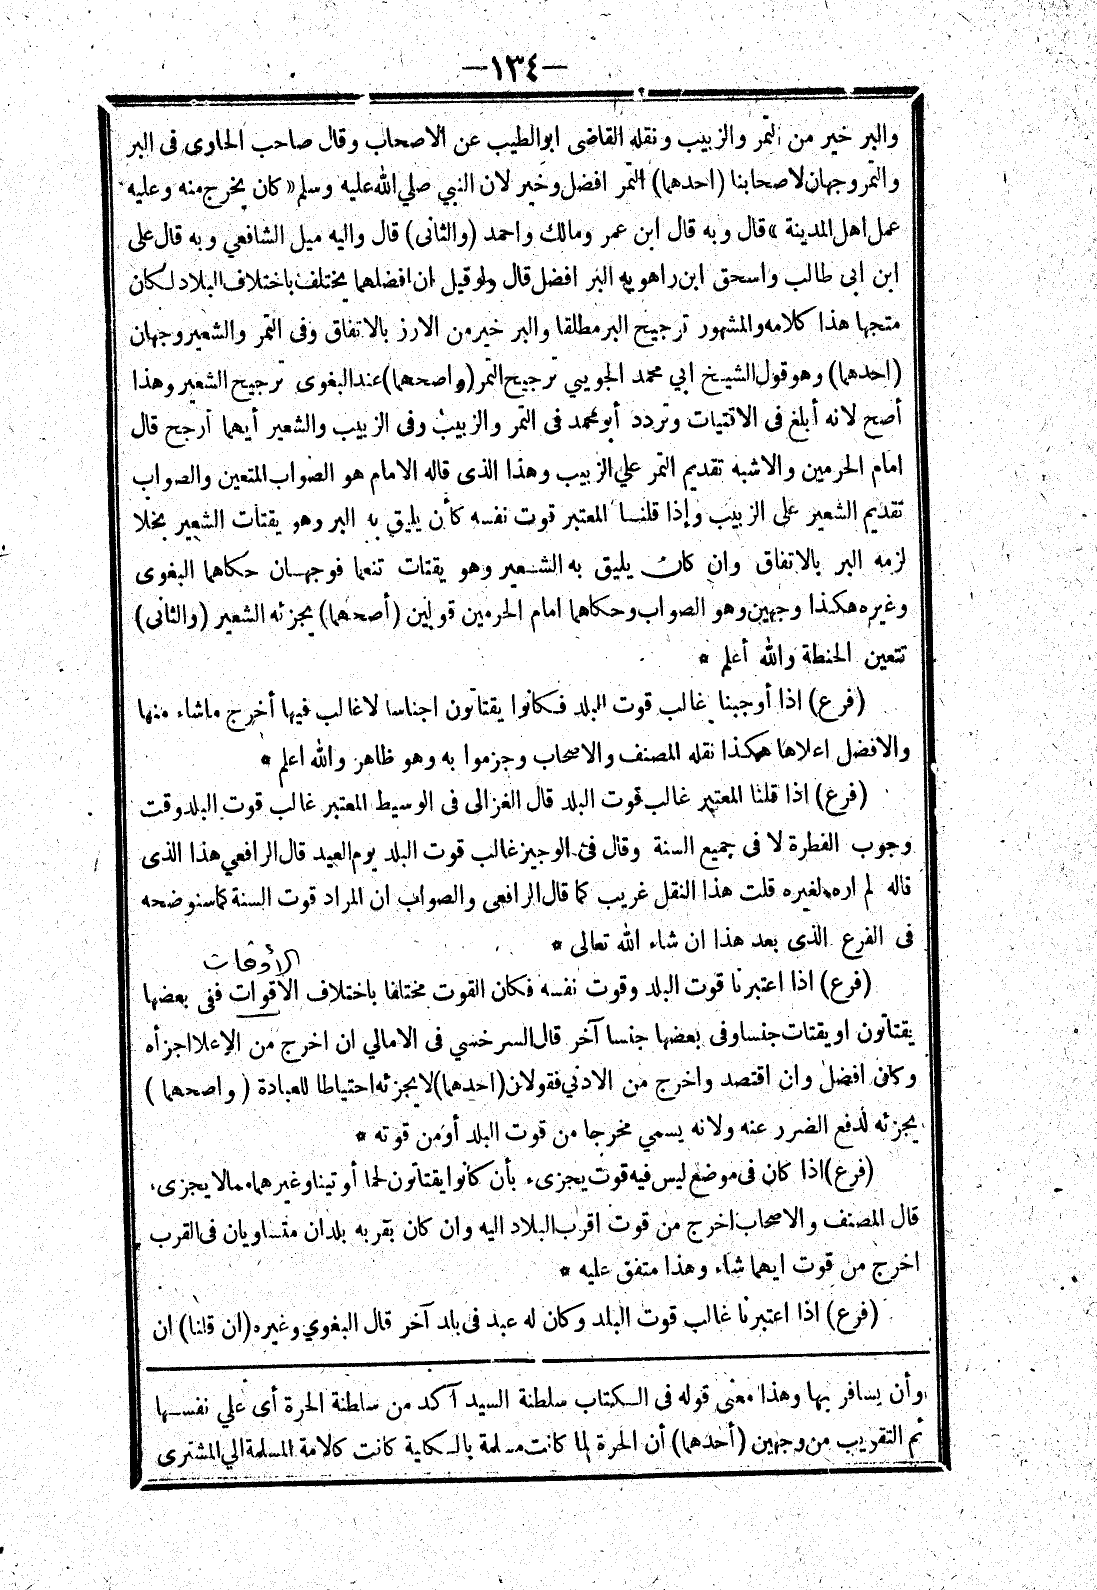 —١٣٤—
والبر خير من التمر والزبيب ونقله القاضى ابوالطيب عن الاصحاب وقال صاحب الحاوى فى البر
والتمر وجهان لاصحابنا (احدهما) التمر افضل وخير لان النبي صلي الله عليه وسلم «كان يخرج منه وعليه
عمل اهل المدينة» قال وبه قال ابن عمر ومالك واحمد (والثانى) قال واليه ميل الشافعي وبه قال على
ابن ابى طالب واسحق ابن راهويه البر افضل قال ولو قيل ان افضلهما يختلف باختلاف البلاد لكان
متجها هذا كلامه والمشهور ترجيح البر مطلقا والبر خير من الارز بالاتفاق وفى التمر والشعير وجهان
(احدهما) وهو قول الشيخ ابي محمد الجويني ترجيح التمر (واصحهما) عند البغوى ترجيح الشعير وهذا
أصح لانه أبلغ فى الاقتيات وتردد أبو محمد فى التمر والزبيب وفى الزبيب والشعير أيهما أرجح قال
امام الحرمين والاشبه تقديم التمر علي الزبيب وهذا الذى قاله الامام هو الصواب المتعين والصواب
تقديم الشعير على الزبيب وإذا قلنا المعتبر قوت نفسه كأن يليق به البر وهو يقتات الشعير بخلا
لزمه البر بالاتفاق وان كان يليق به الشعير وهو يقتات تنعما فوجهان حكاهما البغوى
وغيره هكذا وجهين وهو الصواب وحكاهما امام الحرمين قولين (أصحهما) يجزئه الشعير (والثانى)
تتعين الحنطة والله أعلم *
(فرع) اذا أوجبنا غالب قوت البلد فكانوا يقتاتون اجناسا لا غالب فيها أخرج ماشاء منها
والافضل اعلاها هكذا نقله المصنف والاصحاب وجزموا به وهو ظاهر والله اعلم *
(فرع) اذا قلنا المعتبر غالب قوت البلد قال الغزالى فى الوسيط المعتبر غالب قوت البلد وقت
وجوب الفطرة لا فى جميع السنة وقال فى الوجيز غالب قوت البلد يوم العيد قال الرافعي هذا الذى
قاله لم اره لغيره قلت هذا النقل غريب كما قال الرافعى والصواب ان المراد قوت السنة كما سنوضحه
فى الفرع الذى بعد هذا ان شاء الله تعالى *
الأوقات
(فرع) اذا اعتبرنا قوت البلد وقوت نفسه فكان القوت مختلفا باختلاف الاقوات ففى بعضها
يقتاتون او يقتات جنسا وفى بعضها جنسا آخر قال السرخسي فى الامالي ان اخرج من الإعلا اجزأه
وكان افضل وان اقتصد واخرج من الادني فقولان (احدهما) لا يجزئه احتياطا للعبادة (واصحهما)
يجزئه لدفع الضرر عنه ولانه يسمي مخرجا من قوت البلد أو من قوته *
(فرع) اذا كان فى موضع ليس فيه قوت يجزىء بأن كانوا يقتاتون لحما أو تينا وغيرهما مما لا يجزى،
قال المصنف والاصحاب اخرج من قوت اقرب البلاد اليه وان كان بقربه بلدان متساويان فى القرب
اخرج من قوت ايهما شاء وهذا متفق عليه *
(فرع) اذا اعتبرنا غالب قوت البلد وكان له عبد فى بلد آخر قال البغوي وغيره (ان قلنا) ان
وأن يسافر بها وهذا معنى قوله فى الكتاب سلطنة السيد آكد من سلطنة الحرة أى علي نفسها
ثم التقريب من وجهين (أحدهما) أن الحرة لما كانت مسلمة بالكلية كانت كالامة المسلمة الي المشترى